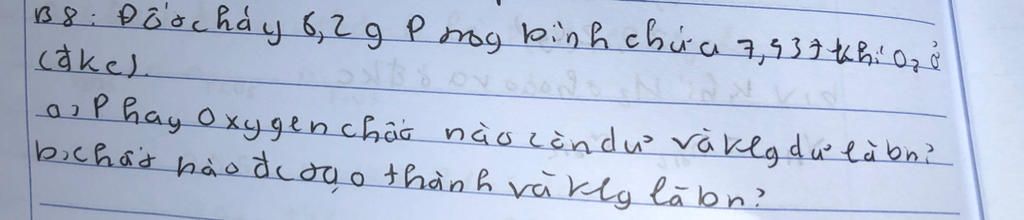 B8: Đốt cháy 6,2g P trog bình chứa 7,437l khí O2 ở
(đkc).
a, P hay Oxygen chất nào còn dư và klg dư là bn?
b, chất nào đc tạo thành và klg là bn?